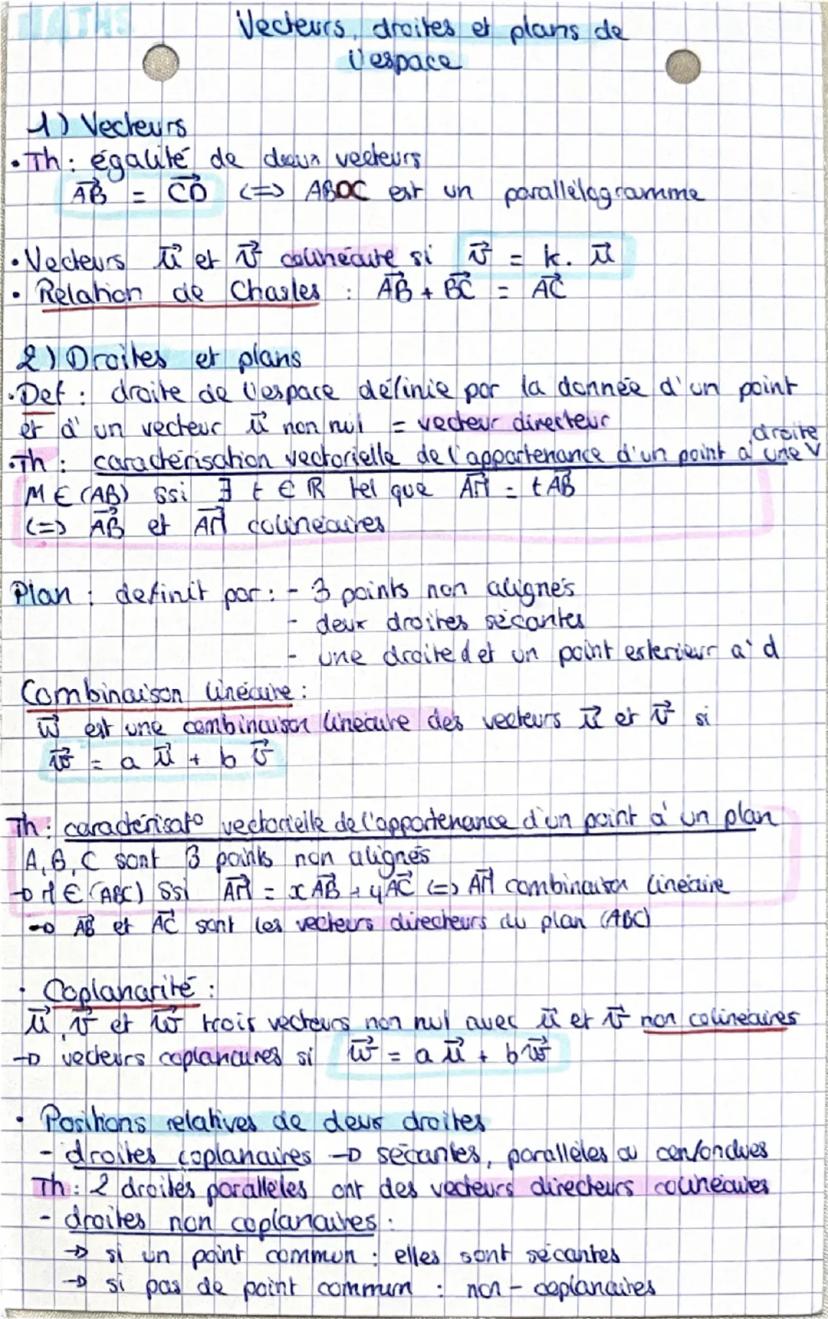 Vecteurs, droites et plans de
l'espace
1) Vecteurs
• Th : égalité de deux vecteurs
AB⃗ = CD⃗ <=> ABDC est un parallélogramme
• Vecteurs u⃗ et v⃗ colinéaire si v⃗ = k. u⃗
• Relation de Chasles : AB⃗ + BC⃗ = AC⃗
2) Droites et plans
• Def : droite de l'espace définie par la donnée d'un point
et d'un vecteur u⃗ non nul = vecteur directeur
• Th : caractérisation vectorielle de l'appartenance d'un point à une droite
M ∈ (AB) ssi ∃ t ∈ ℝ tel que AM⃗ = t AB⃗
<=> AB⃗ et AM⃗ colinéaires
Plan : definit par : - 3 points non alignés
- deux droites sécantes
- une droite d et un point exterieur à d
Combinaison linéaire :
w⃗ est une combinaison linéaire des vecteurs u⃗ et v⃗ si
w⃗ = a u⃗ + b v⃗
Th : caractérisat° vectorielle de l'appartenance d'un point à un plan
A, B, C sont 3 points non alignés
→ M ∈ (ABC) ssi AM⃗ = xAB⃗ + yAC⃗ <=> AM⃗ combinaison linéaire
→ AB⃗ et AC⃗ sont les vecteurs directeurs du plan (ABC)
• Coplanarité :
u⃗, v⃗ et w⃗ trois vecteurs non nul avec u⃗ et v⃗ non colinéaires
→ vecteurs coplanaires si w⃗ = a u⃗ + b v⃗
• Positions relatives de deux droites
- droites coplanaires → sécantes, parallèles ou confondues
Th : 2 droites parallèles ont des vecteurs directeurs colinéaires
- droites non coplanaires :
→ si un point commun : elles sont sécantes
→ si pas de point commun : non - coplanaires